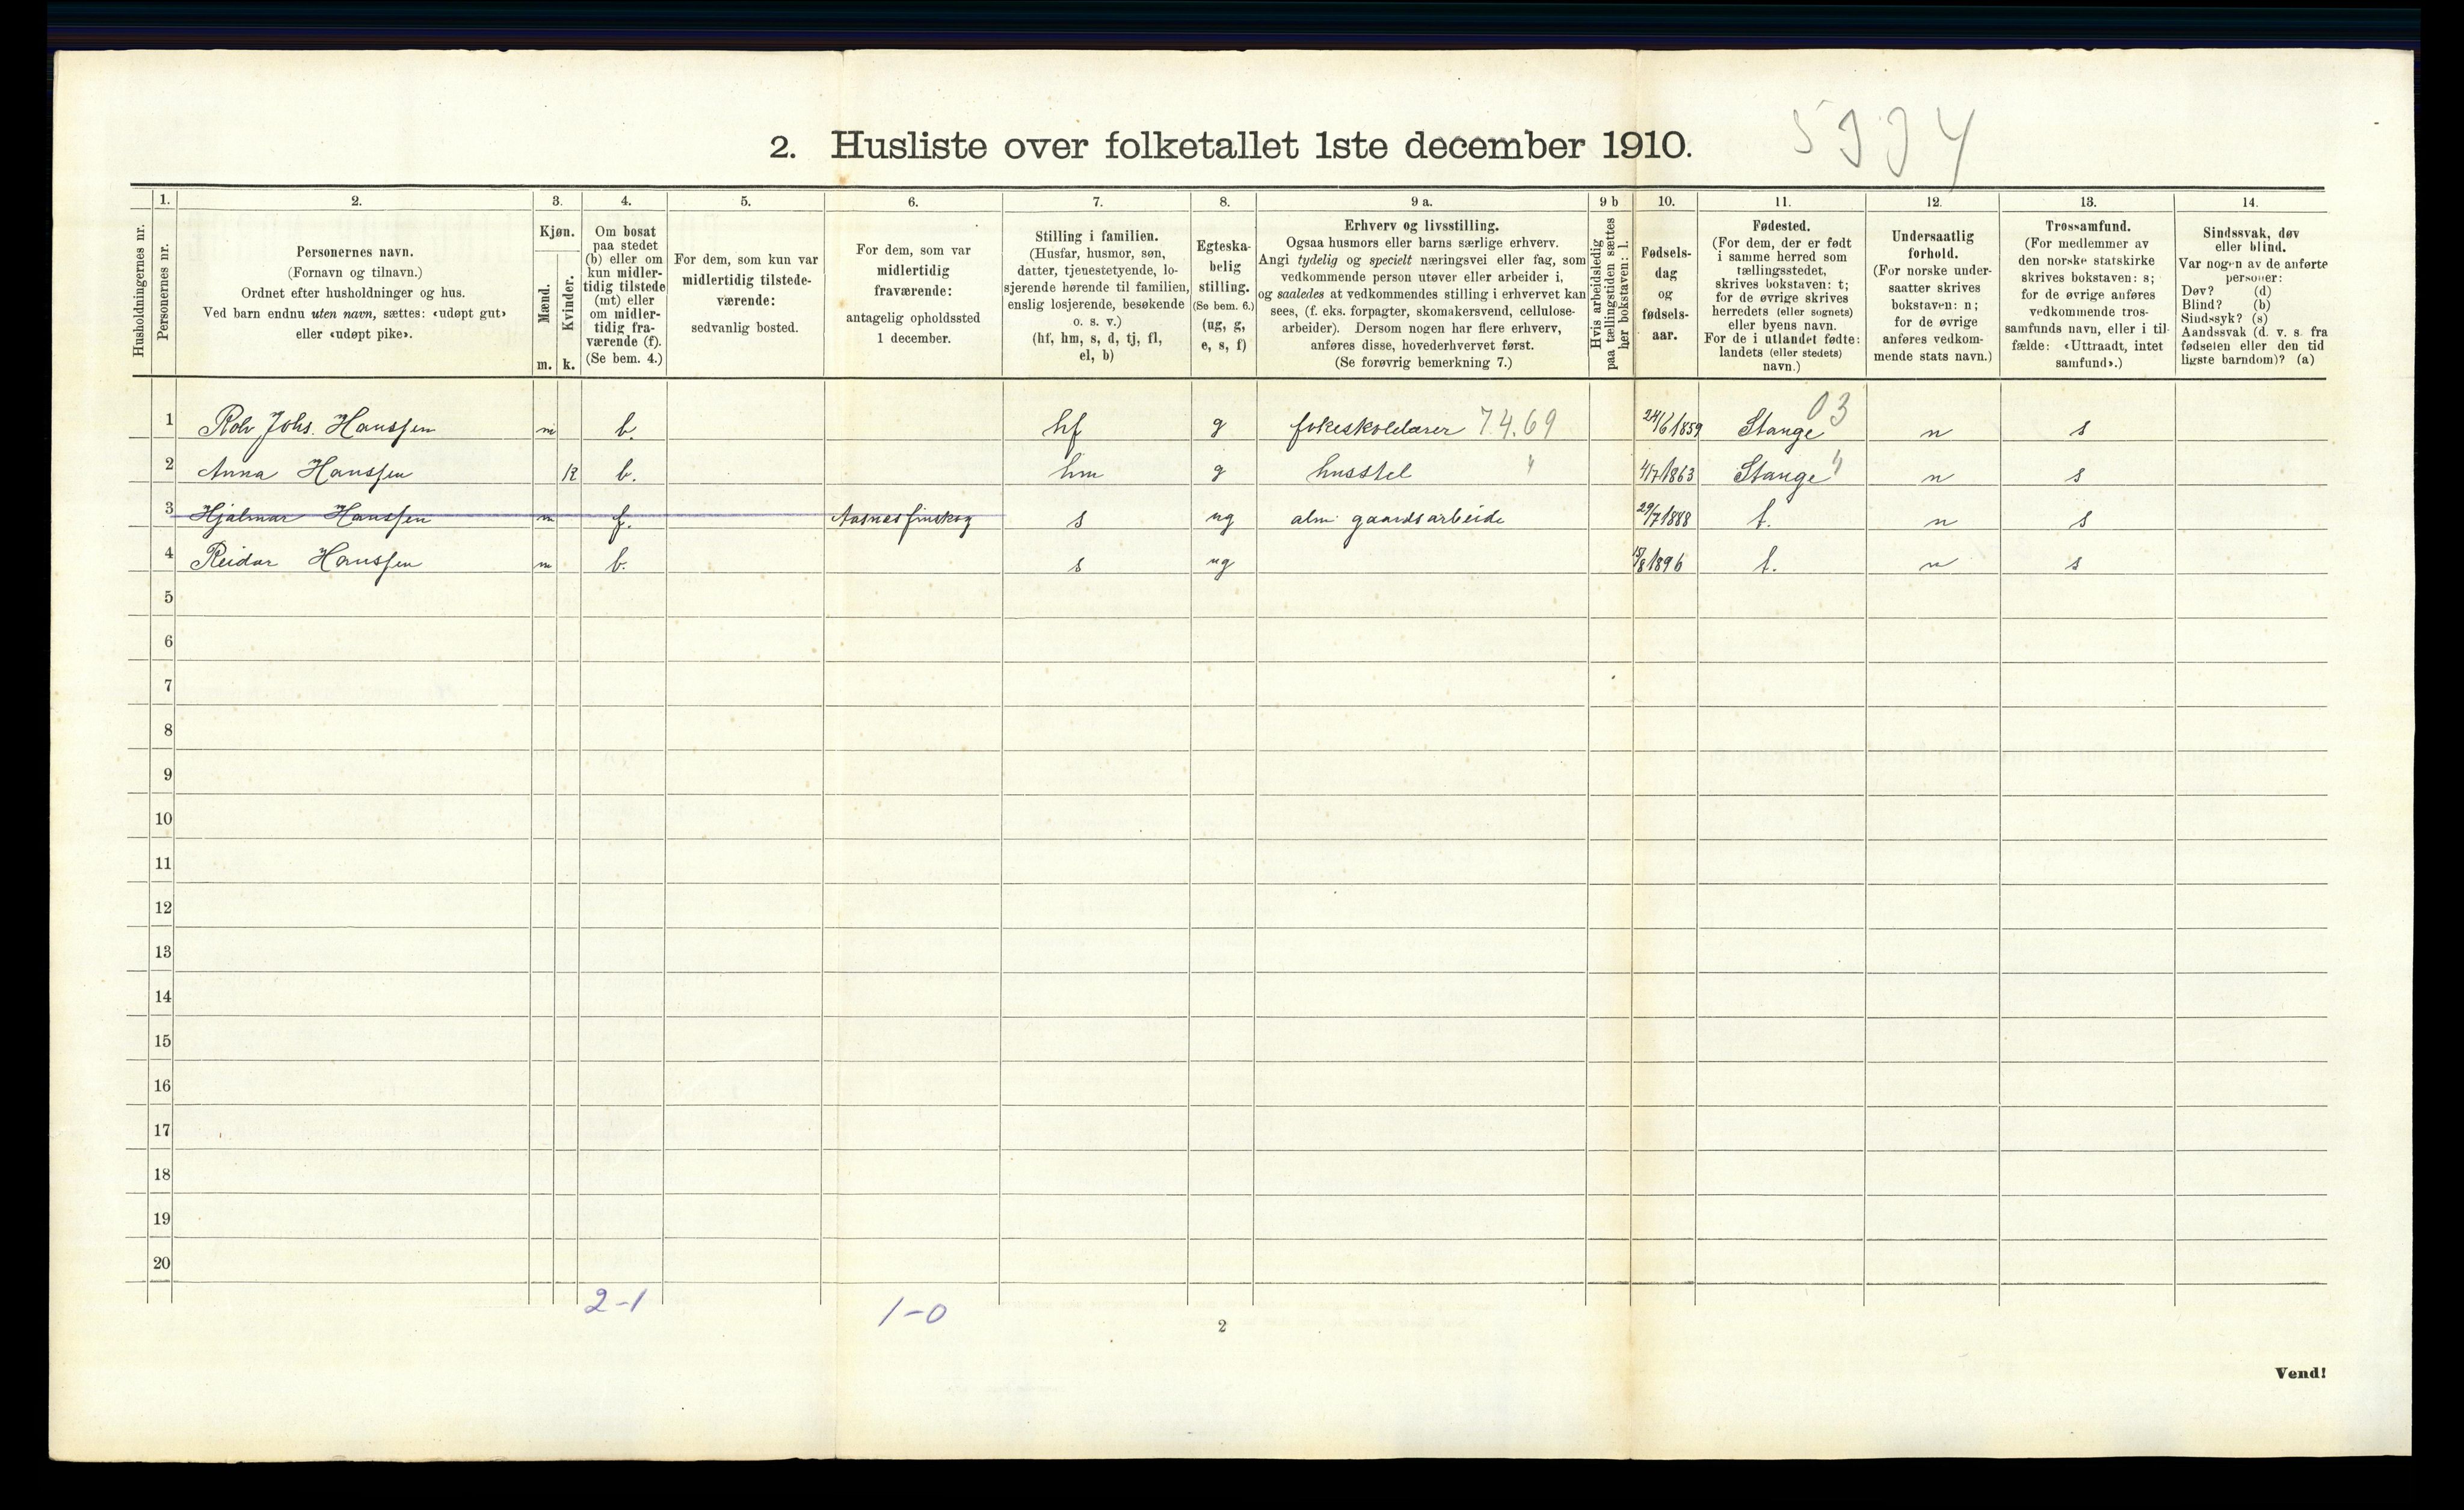 5334
2. Husliste over folketallet 1ste december 1910.
Husholdningernes nr.
1.
Personernes nr.
2.
Personernes navn.
(Fornavn og tilnavn.)
Ordnet efter husholdninger og hus.
Ved barn endnu uten navn, sættes: «udøpt gut»
eller «udøpt pike».
3.
Kjøn.
Mænd.
m.
Kvinder.
k.
4.
Om bosat
paa stedet
(b) eller om
kun midler-
tidig tilstede
(mt) eller
om midler-
tidig fra-
værende (f).
(Se bem. 4.)
5.
For dem, som kun var
midlertidig tilstede-
værende:
sedvanlig bosted.
6.
For dem, som var
midlertidig
fraværende:
antagelig opholdssted
1 december.
7.
Stilling i familien.
(Husfar, husmor, søn,
datter, tjenestetyende, lo-
sjerende hørende til familien,
enslig losjerende, besøkende
o. s. v.)
(hf, hm, s, d, tj, fl,
el, b)
8.
Egteska-
belig
stilling.
(Se bem. 6.)
(ug, g,
e, s, f)
9 a.
Erhverv og livsstilling.
Ogsaa husmors eller barns særlige erhverv.
Angi tydelig og specielt næringsvei eller fag, som
vedkommende person utøver eller arbeider i,
og saaledes at vedkommendes stilling i erhvervet kan
sees, (f. eks. forpagter, skomakersvend, cellulose-
arbeider). Dersom nogen har flere erhverv,
anføres disse, hovederhvervet først.
(Se forøvrig bemerkning 7.)
9 b
Hvis arbeidsledig
paa tællingstiden sættes
her bokstaven: l.
10.
Fødsels-
dag
og
fødsels-
aar.
11.
Fødested.
(For dem, der er født
i samme herred som
tællingsstedet,
skrives bokstaven: t;
for de øvrige skrives
herredets (eller sognets)
eller byens navn.
For de i utlandet fødte:
landets (eller stedets)
navn.)
12.
Undersaatlig
forhold.
(For norske under-
saatter skrives
bokstaven: n;
for de øvrige
anføres vedkom-
mende stats navn.)
13.
Trossamfund.
(For medlemmer av
den norske statskirke
skrives bokstaven: s;
for de øvrige anføres
vedkommende tros-
samfunds navn, eller i til-
fælde: «Uttraadt, intet
samfund».)
14.
Sindssvak, døv
eller blind.
Var nogen av de anførte
personer:
Døv? (d)
Blind? (b)
Sindssyk? (s)
Aandssvak (d. v. s. fra
fødselen eller den tid
ligste barndom)? (a)
1 Rolv Johs. Hanssen m b. hf g folkeskolelærer 7.4.69 24/6 1859 Stange 03 n s
2 Anna Hanssen k b. hm g husstel " 4/7 1863 Stange " n s
3 Hjalmar Hanssen m f. Aasnes finskog s ug alm gaardsarbeide 29/7 1888 t. n s
4 Reidar Hanssen m b. s ug 15/8 1896 t. n s
5
6
7
8
9
10
11
12
13
14
15
16
17
18
19
20
2-1
1-0
2
Vend!